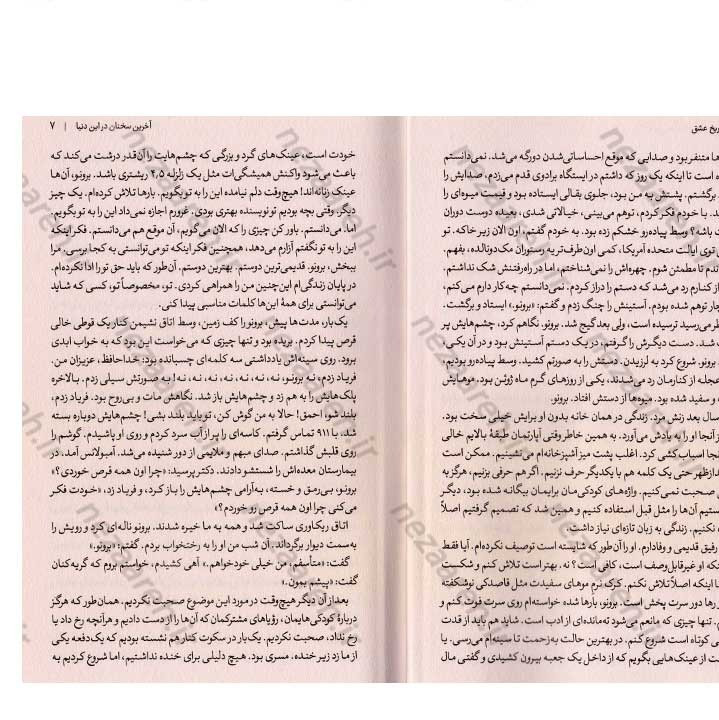 ریخ عشق
ها متنفر بود و صدایی که موقع احساساتی‌شدن دورگه می‌شد. نمی‌دانستم
ده است تا اینکه یک روز که داشتم در ایستگاه برادوی قدم می‌زدم، صدایش را
برگشتم. پشتش به من بود، جلوی بقالی ایستاده بود و قیمت میوه‌ای را
ید. با خودم فکر کردم، توهم می‌بینی، خیالاتی شدی، بعیده دوست دوران
باشه؟ وسط پیاده‌رو خشکم زده بود. به خودم گفتم، اون الان زیر خاکه. تو
توی ایالت متحده آمریکا، کمی اون‌طرف‌تر یه رستوران مک‌دونالده، بفهم.
ندم تا مطمئن شوم. چهره‌اش را نمی‌شناختم، اما در راه‌رفتنش شک نداشتم.
از کنارم رد می‌شد که دستم را دراز کردم. نمی‌دانستم چه‌کار دارم می‌کنم،
چار توهم شده بودم. آستینش را چنگ زدم و گفتم: «برونو.»، ایستاد و برگشت.
ظر می‌رسید ترسیده است، ولی بعد گیج شد. برونو. نگاهم کرد، چشم‌هایش پر
شد. دست دیگرش را گرفتم، در یک دستم آستینش بود و در آن یکی،
برونو. شروع کرد به لرزیدن. دستش را به صورتم کشید. وسط پیاده‌رو بودیم،
عجله از کنارمان رد می‌شدند، یکی از روزهای گرم ماه ژوئن بود، موهایش
و سفید شده بود. میوه‌ها از دستش افتاد. برونو.
سال بعد زنش مرد. زندگی در همان خانه بدون او برایش خیلی سخت بود.
ز آنجا او را به یادش می‌آورد. به همین خاطر وقتی آپارتمان طبقهٔ بالایم خالی
نجا اسباب‌کشی کرد. اغلب پشت میز آشپزخانه‌ام می‌نشینیم. ممکن است
دازظهر حتی یک کلمه هم با یکدیگر حرف نزنیم. اگر هم حرفی بزنیم، هرگز به
ی صحبت نمی‌کنیم. واژه‌های کودکی‌مان برایمان بیگانه شده بود، دیگر
ستیم آن‌ها را مثل قبل استفاده کنیم و همین شد که تصمیم گرفتیم اصلاً
نکنیم. زندگی به زبان تازه‌ای نیاز داشت.
رفیق قدیمی و وفادارم. او را آن‌طور که شایسته است توصیف نکرده‌ام. آیا فقط
ینکه او غیرقابل‌وصف است، کافی است؟ نه. بهتر است تلاش کنم و شکست
تا اینکه اصلاً تلاش نکنم. کرک نرم موهای سفیدت مثل قاصدکی نوشکفته
رها دور سرت پخش است. برونو، بارها شده خواسته‌ام روی سرت فوت کنم و
م. تنها چیزی که مانعم می‌شود ته‌مانده‌ای از ادب است. شاید هم باید از قدت
ی کوتاه است شروع کنم. در بهترین حالت به‌زحمت تا سینه‌ام می‌رسی. یا
ت از عینک‌هایی بگویم که از داخل یک جعبه بیرون کشیدی و گفتی مال
آخرین سخنان در این دنیا | ۷
خودت است، عینک‌های گرد و بزرگی که چشم‌هایت را آن‌قدر درشت می‌کند که
باعث می‌شود واکنش همیشگی‌ات مثل یک زلزله ۴٫۵ ریشتری باشد. برونو، آن‌ها
عینک زنانه‌اند! هیچ‌وقت دلم نیامده این را به تو بگویم. بارها تلاش کرده‌ام. یک چیز
دیگر. وقتی بچه بودیم تو نویسنده بهتری بودی. غرورم اجازه نمی‌داد این را به تو بگویم.
اما. می‌دانستم. باور کن چیزی را که الان می‌گویم، آن موقع هم می‌دانستم. فکر اینکه
این را به تو نگفتم آزارم می‌دهد، همچنین فکر اینکه تو می‌توانستی به کجا برسی. مرا
ببخش، برونو. قدیمی‌ترین دوستم. بهترین دوستم. آن‌طور که باید حق تو را ادا نکرده‌ام.
در پایان زندگی‌ام این‌چنین من را همراهی کردی. تو، مخصوصاً تو، کسی که شاید
می‌توانستی برای همهٔ این‌ها کلمات مناسبی پیدا کنی.
یک بار، مدت‌ها پیش، برونو را کف زمین، وسط اتاق نشیمن کنار یک قوطی خالی
قرص پیدا کردم. بریده بود و تنها چیزی که می‌خواست این بود که به خواب ابدی
برود. روی سینه‌اش یادداشتی سه کلمه‌ای چسبانده بود: خداحافظ، عزیزان من.
فریاد زدم، نه برونو، نه، نه، نه، نه، نه، نه، نه! به صورتش سیلی زدم. بالاخره
پلک‌هایش را به هم زد و چشم‌هایش باز شد. نگاهش مات و بی‌روح بود. فریاد زدم،
بلند شو، احمق! حالا به من گوش کن، تو باید بلند بشی! چشم‌هایش دوباره بسته
شد. با ۹۱۱ تماس گرفتم. کاسه‌ای را پر از آب سرد کردم و روی او پاشیدم. گوشم را
روی قلبش گذاشتم. صدای مبهم و ملایمی از دور شنیده می‌شد. آمبولانس آمد. در
بیمارستان معده‌اش را شستشو دادند. دکتر پرسید: «چرا اون همه قرص خوردی؟»
برونو، بی‌رمق و خسته، به‌آرامی چشم‌هایش را باز کرد، و فریاد زد، «خودت فکر
می‌کنی چرا اون همه قرص رو خوردم؟»
اتاق ریکاوری ساکت شد و همه به ما خیره شدند. برونو ناله‌ای کرد و رویش را
به‌سمت دیوار برگرداند. آن شب من او را به رختخواب بردم. گفتم: «برونو.»
گفت: «متأسفم، من خیلی خودخواهم.» آهی کشیدم، خواستم بروم که گریه‌کنان
گفت: «پیشم بمون.»
بعد از آن دیگر هیچ‌وقت در مورد این موضوع صحبت نکردیم. همان‌طور که هرگز
دربارهٔ کودکی‌هایمان، رؤیاهای مشترکمان که آن‌ها را از دست دادیم و هرآنچه رخ داد یا
رخ نداد، صحبت نکردیم. یک بار در سکوت کنار هم نشسته بودیم که یک‌دفعه یکی
از ما زد زیر خنده. مسری بود. هیچ دلیلی برای خنده نداشتیم، اما شروع کردیم به